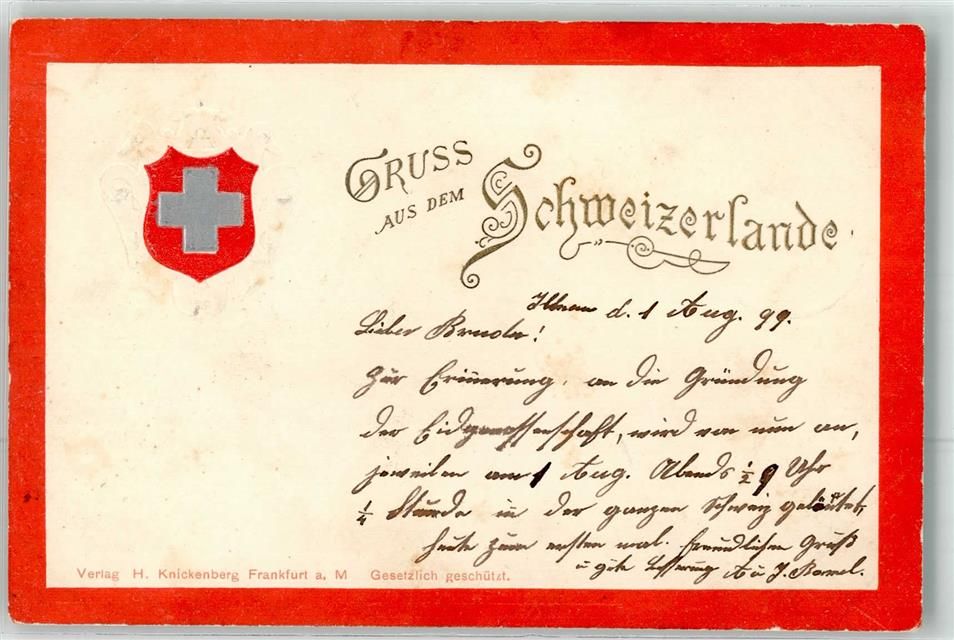 GRUSS
AUS DEM
Schweizerlande
d. 1 Aug. 99.
Lieber Bruder!
Zur Erinnerung, an die Gründung
der Eidgenossenschaft, wird von nun an,
jeweilen am 1 Aug. Abends ½ 9 Uhr
¼ Stunde in der ganzen Schweiz geläutet,
heute zum ersten mal. Freundlichen Gruß
u gute Besserung A u J.
Verlag H. Knickenberg Frankfurt a, M Gesetzlich geschützt.